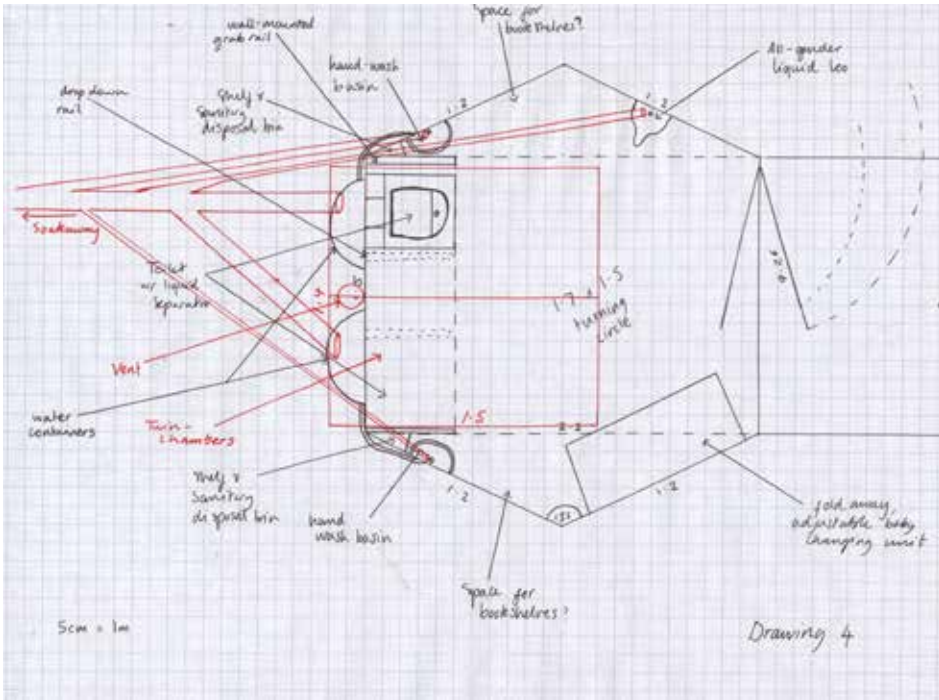 wall-mounted
grab rail
Space for
bookshelves?
hand-wash
basin
All-gender
liquid loo
drop down
rail
Shelf &
Sanitary
disposal bin
1.2
1.2
Soakaway
Toilet
w/ liquid
separator
1.7 x 1.5
turning
circle
Vent
water
containers
Twin-
chambers
1.5
2.2
Shelf &
Sanitary
disposal bin
hand
wash basin
1.2
1.2
fold away,
adjustable baby
changing unit
Space for
bookshelves?
5cm = 1m
Drawing 4